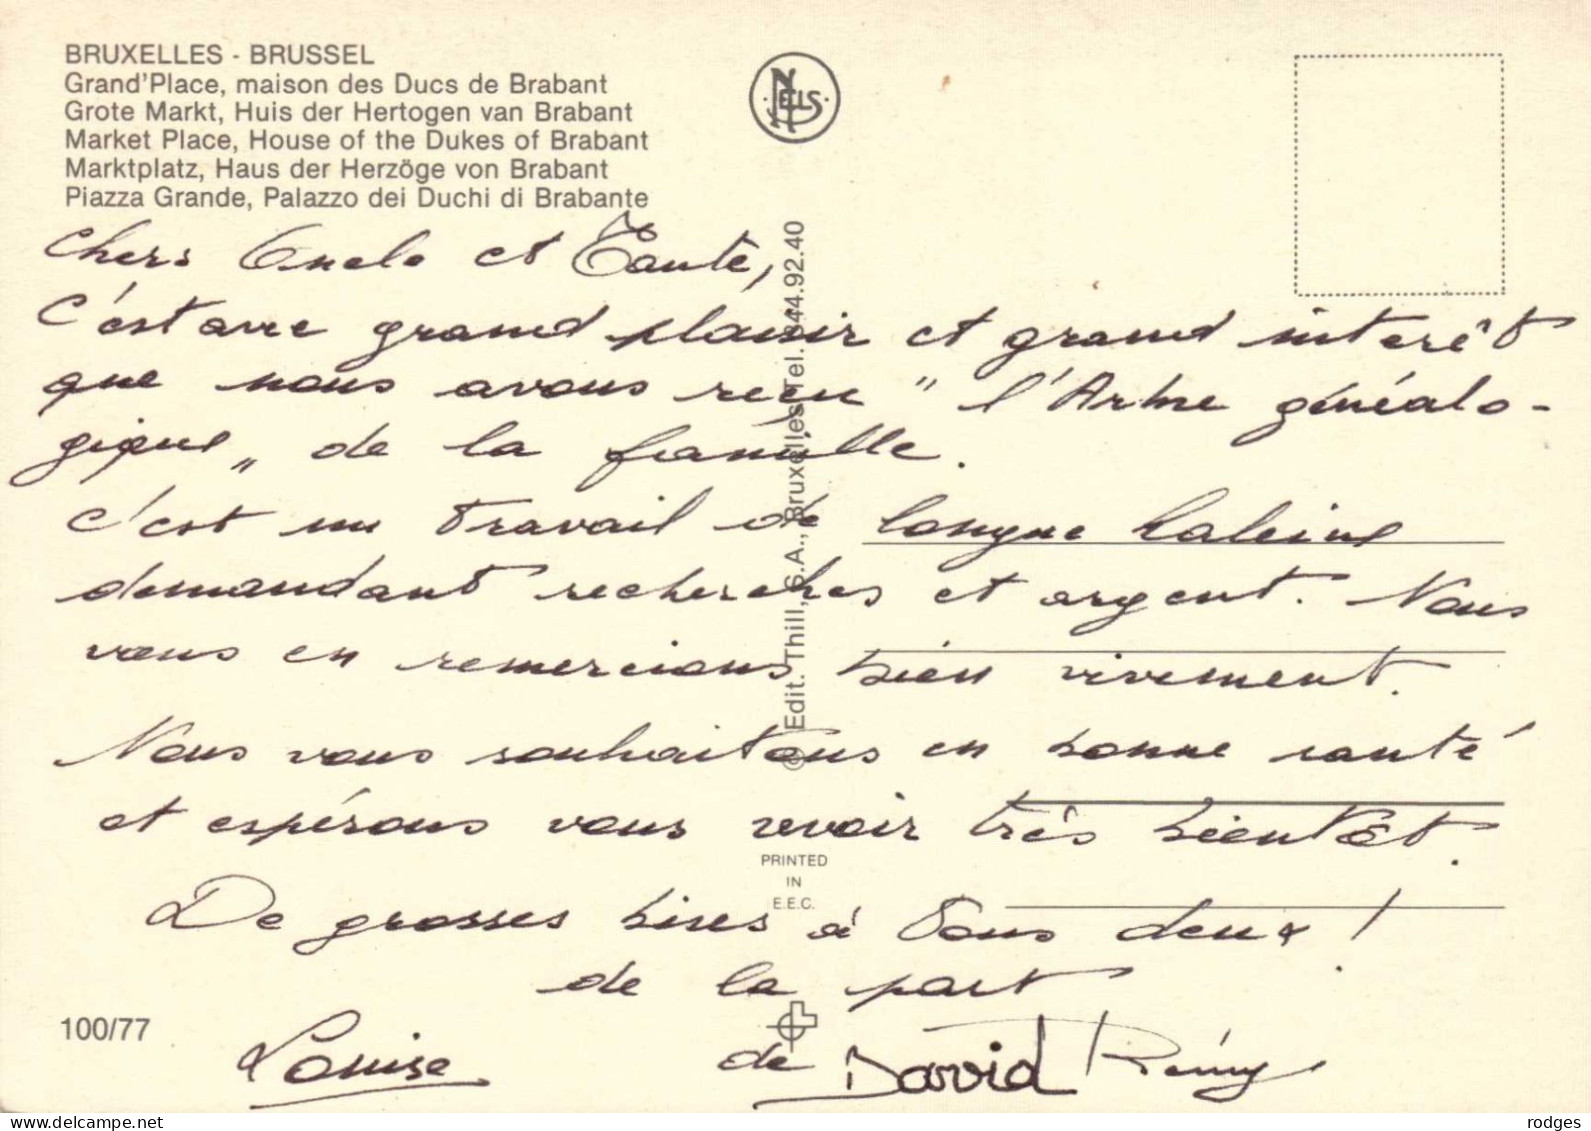 BRUXELLES - BRUSSEL
Grand'Place, maison des Ducs de Brabant
Grote Markt, Huis der Hertogen van Brabant
Market Place, House of the Dukes of Brabant
Marktplatz, Haus der Herzöge von Brabant
Piazza Grande, Palazzo dei Duchi di Brabante
NELS
Chers Oncle et Tante,
C'est avec grand plaisir et grand intérêt
que nous avons reçu " l'Arbre généalo-
gique " de la famille.
C'est un travail de longue haleine
demandant recherches et argent. Nous
vous en remercions bien vivement.
Nous vous souhaitons en bonne santé
et espérons vous revoir très bientôt.
De grosses bises à tous deux !
de la part
Louise de David Rémy
© Edit. Thill, S.A., Bruxelles Tel. 344.92.40
PRINTED
IN
E.E.C.
100/77
delcampe.net
rodges